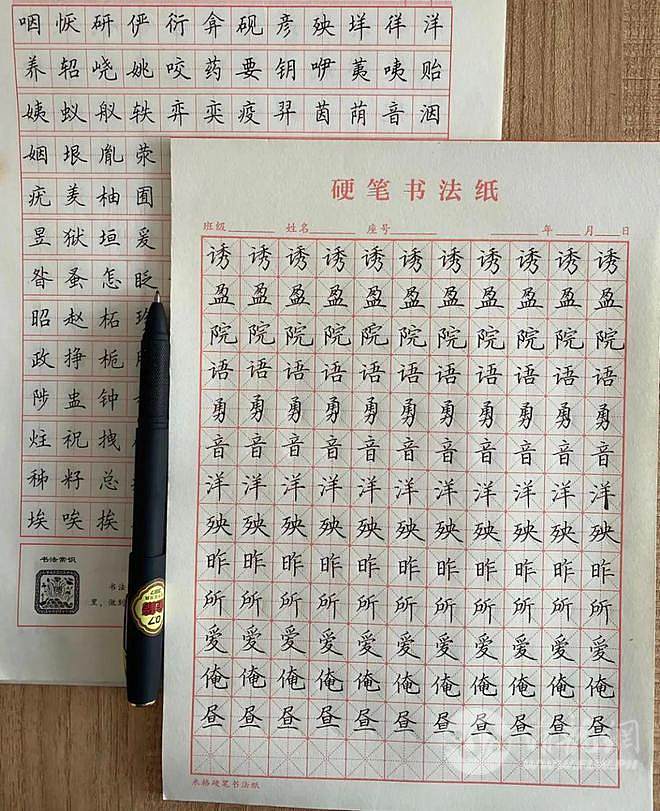 咽恹研俨衍弇砚彦殃垟徉洋
养轺峣姚咬药要钥咿荑咦贻
姨蚁舣轶弈奕疫羿茵荫音洇
姻垠胤荥
疣羑柚囿
昱狱垣爰
昝蚤怎眨
昭赵柘
政挣栀
陟盅钟
炷祝拽
秭籽总
埃唉挨
书法常识
书法
里，做到
硬笔书法纸
班级 姓名 座号 年 月 日
诱诱诱诱诱诱诱诱诱诱诱
盈盈盈盈盈盈盈盈盈盈盈
院院院院院院院院院院院
语语语语语语语语语语语
勇勇勇勇勇勇勇勇勇勇勇
音音音音音音音音音音音
洋洋洋洋洋洋洋洋洋洋洋
殃殃殃殃殃殃殃殃殃殃殃
昨昨昨昨昨昨昨昨昨昨昨
所所所所所所所所所所所
爱爱爱爱爱爱爱爱爱爱爱
俺俺俺俺俺俺俺俺俺俺俺
昼昼昼昼昼昼昼昼昼昼昼
米格硬笔书法纸
0.7